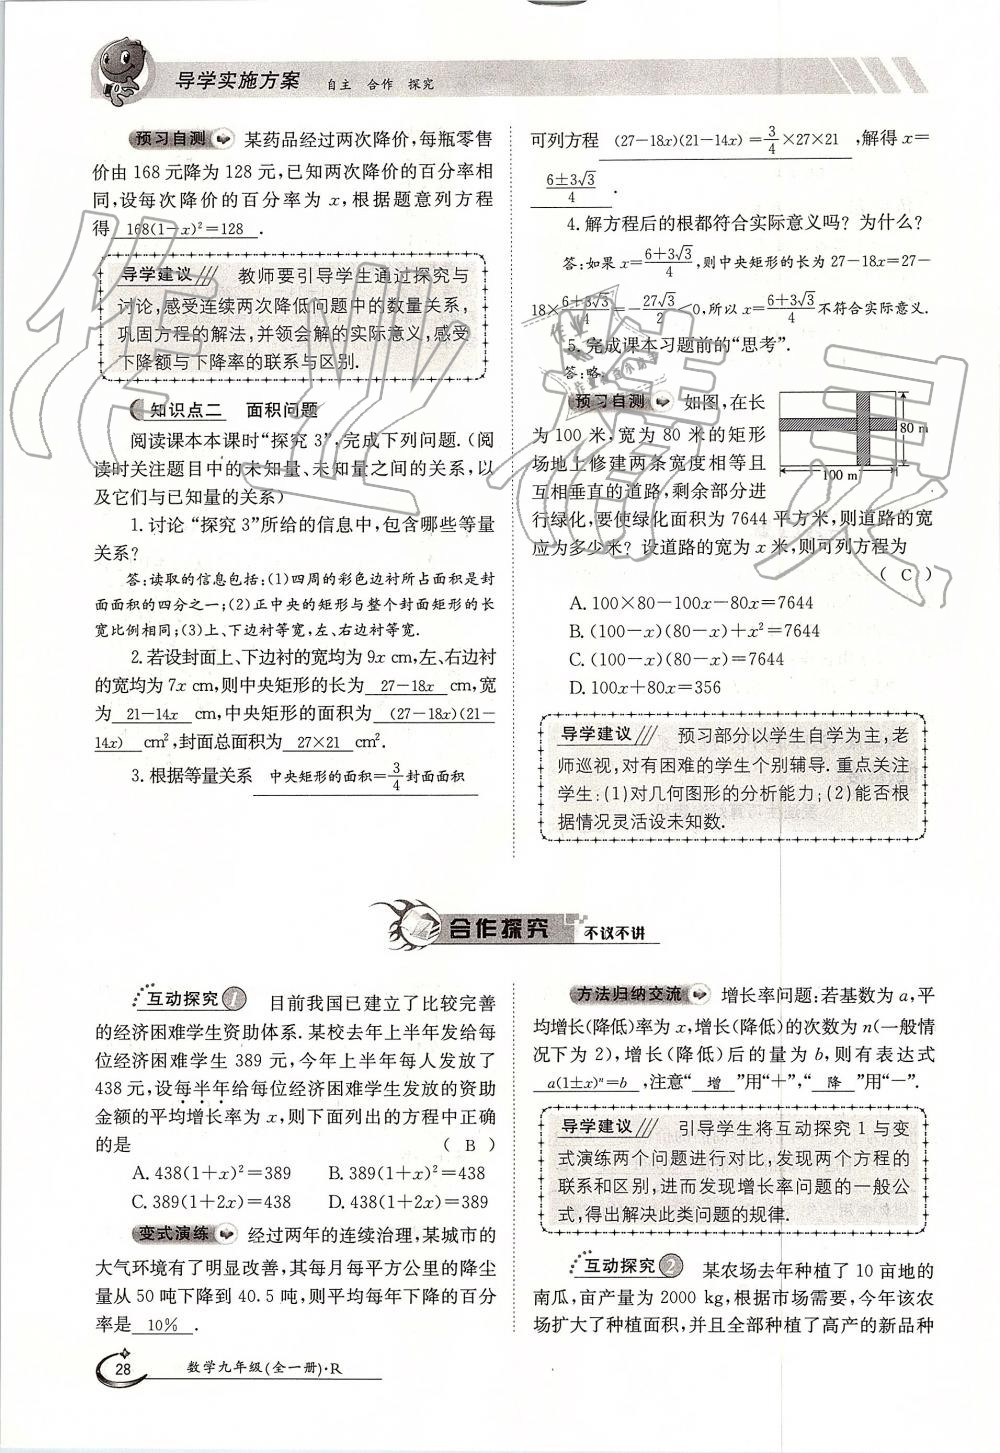 导学实施方案 自主 合作 探究
预习自测 某药品经过两次降价,每瓶零售
价由 168 元降为 128 元,已知两次降价的百分率相
同,设每次降价的百分率为 x,根据题意列方程
得 168(1-x)²=128 .
导学建议 教师要引导学生通过探究与
讨论,感受连续两次降低问题中的数量关系,
巩固方程的解法,并领会解的实际意义,感受
下降额与下降率的联系与区别.
知识点二 面积问题
阅读课本本课时“探究 3”,完成下列问题.(阅
读时关注题目中的未知量、未知量之间的关系,以
及它们与已知量的关系)
1. 讨论“探究 3”所给的信息中,包含哪些等量
关系?
答:读取的信息包括:(1)四周的彩色边衬所占面积是封
面面积的四分之一;(2)正中央的矩形与整个封面矩形的长
宽比例相同;(3)上、下边衬等宽,左、右边衬等宽.
2. 若设封面上、下边衬的宽均为 9x cm,左、右边衬
的宽均为 7x cm,则中央矩形的长为 27-18x cm,宽
为 21-14x cm,中央矩形的面积为 (27-18x)(21-
14x) cm²,封面总面积为 27×21 cm².
3. 根据等量关系 中央矩形的面积=3/4封面面积
可列方程 (27-18x)(21-14x)=3/4×27×21 ,解得 x=
(6±3√3)/4 .
4. 解方程后的根都符合实际意义吗?为什么?
答:如果 x=(6+3√3)/4,则中央矩形的长为 27-18x=27-
18×(6+3√3)/4=-27√3/2<0,所以 x=(6+3√3)/4不符合实际意义.
5. 完成课本习题前的“思考”.
答:略.
预习自测 如图,在长
为 100 米,宽为 80 米的矩形
场地上修建两条宽度相等且
互相垂直的道路,剩余部分进
行绿化,要使绿化面积为 7644 平方米,则道路的宽
应为多少米?设道路的宽为 x 米,则可列方程为
( C )
80 m
100 m
A. 100×80-100x-80x=7644
B. (100-x)(80-x)+x²=7644
C. (100-x)(80-x)=7644
D. 100x+80x=356
导学建议 预习部分以学生自学为主,老
师巡视,对有困难的学生个别辅导. 重点关注
学生:(1)对几何图形的分析能力;(2)能否根
据情况灵活设未知数.
合作探究 不议不讲
互动探究 1 目前我国已建立了比较完善
的经济困难学生资助体系. 某校去年上半年发给每
位经济困难学生 389 元,今年上半年每人发放了
438 元,设每半年给每位经济困难学生发放的资助
金额的平均增长率为 x,则下面列出的方程中正确
的是 ( B )
A. 438(1+x)²=389 B. 389(1+x)²=438
C. 389(1+2x)=438 D. 438(1+2x)=389
变式演练 经过两年的连续治理,某城市的
大气环境有了明显改善,其每月每平方公里的降尘
量从 50 吨下降到 40.5 吨,则平均每年下降的百分
率是 10% .
方法归纳交流 增长率问题:若基数为 a,平
均增长(降低)率为 x,增长(降低)的次数为 n(一般情
况下为 2),增长(降低)后的量为 b,则有表达式
a(1±x)ⁿ=b ,注意“ 增 ”用“+”,“ 降 ”用“-”.
导学建议 引导学生将互动探究 1 与变
式演练两个问题进行对比,发现两个方程的
联系和区别,进而发现增长率问题的一般公
式,得出解决此类问题的规律.
互动探究 2 某农场去年种植了 10 亩地的
南瓜,亩产量为 2000 kg,根据市场需要,今年该农
场扩大了种植面积,并且全部种植了高产的新品种
28 数学九年级(全一册)·R